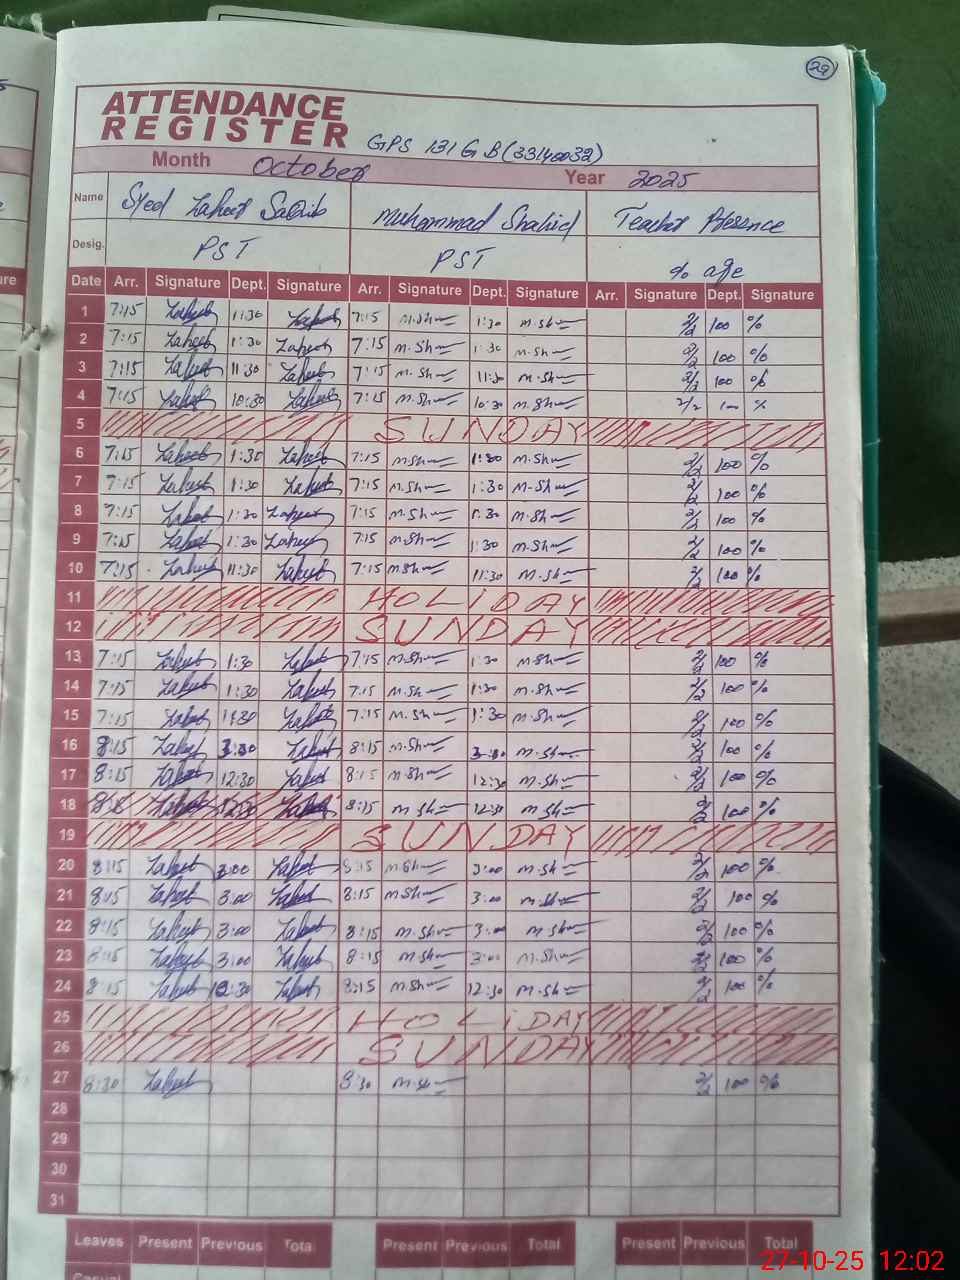 29
ATTENDANCE
REGISTER
GPS 131 GB (33140032)
Month October Year 2025
Name Syed Zaheer Saqib Muhammad Shahid Teacher Presence
Desig. PST PST % age
Date Arr. Signature Dept. Signature Arr. Signature Dept. Signature Arr. Signature Dept. Signature
1 7:15 11:30 7:15 M.Sh 1:30 M.Sh 2/2 100 %
2 7:15 1:30 7:15 M.Sh 1:30 M.Sh 2/2 100 %
3 7:15 11:30 7:15 M.Sh 11:30 M.Sh 2/2 100 %
4 7:15 10:30 7:15 M.Sh 10:30 M.Sh 2/2 100 %
5 SUNDAY
6 7:15 1:30 7:15 M.Sh 1:30 M.Sh 2/2 100 %
7 7:15 1:30 7:15 M.Sh 1:30 M.Sh 2/2 100 %
8 7:15 1:30 7:15 M.Sh 1:30 M.Sh 2/2 100 %
9 7:15 1:30 7:15 M.Sh 1:30 M.Sh 2/2 100 %
10 7:15 11:30 7:15 M.Sh 11:30 M.Sh 2/2 100 %
11 HOLIDAY
12 SUNDAY
13 7:15 1:30 7:15 M.Sh 1:30 M.Sh 2/2 100 %
14 7:15 1:30 7:15 M.Sh 1:30 M.Sh 2/2 100 %
15 7:15 1:30 7:15 M.Sh 1:30 M.Sh 2/2 100 %
16 8:15 3:30 8:15 M.Sh 3:30 M.Sh 2/2 100 %
17 8:15 12:30 8:15 M.Sh 12:30 M.Sh 2/2 100 %
18 8:15 M.Sh 12:30 M.Sh 2/2 100 %
19 SUNDAY
20 8:15 3:00 8:15 M.Sh 3:00 M.Sh 2/2 100 %
21 8:15 3:00 8:15 M.Sh 3:00 M.Sh 2/2 100 %
22 8:15 3:00 8:15 M.Sh 3:00 M.Sh 2/2 100 %
23 8:15 3:00 8:15 M.Sh 3:00 M.Sh 2/2 100 %
24 8:15 12:30 8:15 M.Sh 12:30 M.Sh 2/2 100 %
25 HOLIDAY
26 SUNDAY
27 8:30 8:30 M.Sh 2/2 100 %
28
29
30
31
Leaves Present Previous Total Present Previous Total Present Previous Total
Casual
27-10-25 12:02